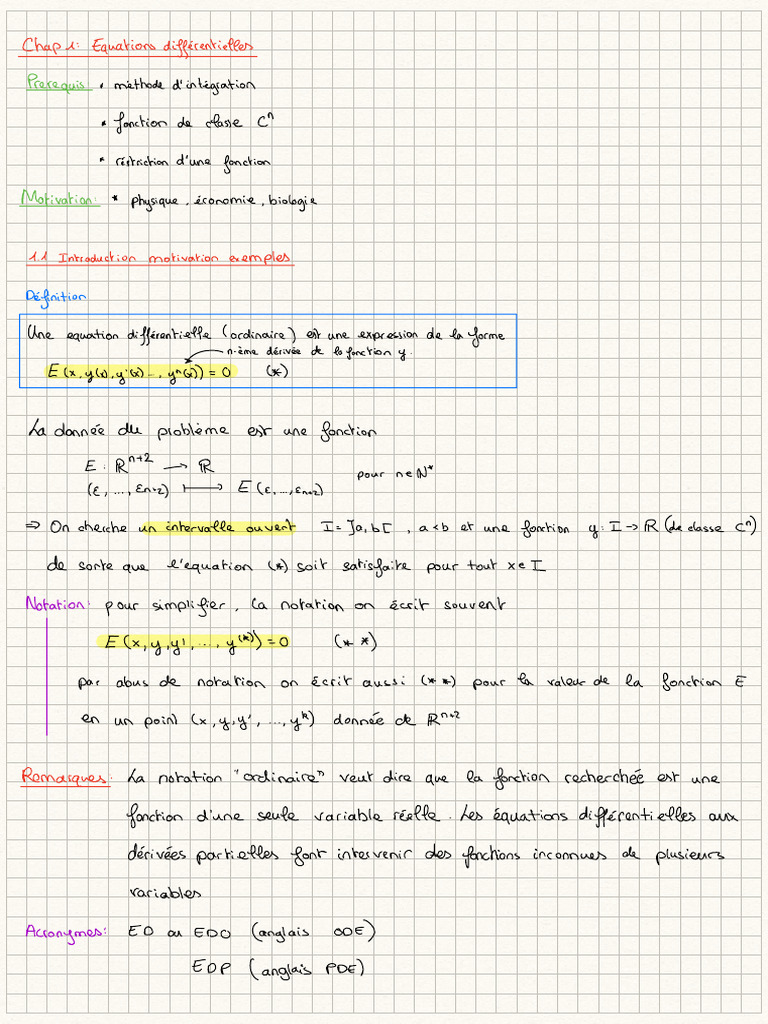 Chap 1: Equations différentielles
Prerequis: * méthode d'intégration
* fonction de classe Cⁿ
* réstriction d'une fonction
Motivation: * physique, économie, biologie
1.1 Introduction motivation exemples
Définition
Une equation différentielle (ordinaire) est une expression de la forme
n-ème dérivée de la fonction y.
E(x, y(x), y'(x) ..., yⁿ(x)) = 0 (*)
La donnée du problème est une fonction
E: ℝⁿ⁺² → ℝ
pour n∈ℕ*
(ε, ..., εn+2) ↦ E(ε, ..., εn+2)
⇒ On cherche un intervalle ouvert I=]a,b[, a<b et une fonction y: I→ℝ (de classe Cⁿ)
de sorte que l'equation (*) soit satisfaite pour tout x∈I
Notation: pour simplifier, la notation on écrit souvent
E(x, y, y', ..., y⁽*⁾) = 0 (**)
par abus de notation on écrit aussi (**) pour la valeur de la fonction E
en un point (x, y, y', ..., yᵏ) donnée de ℝⁿ⁺²
Remarques: La notation "ordinaire" veut dire que la fonction recherchée est une
fonction d'une seule variable réelle. Les équations différentielles aux
dérivées partielles font intervenir des fonctions inconnues de plusieurs
variables
Acronymes: ED ou EDO (anglais ODE)
EDP (anglais PDE)